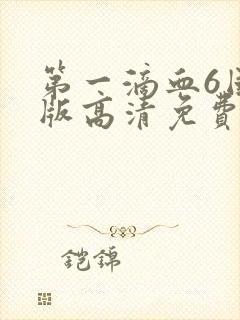 第一滴血6国
版高清免费
铠锦